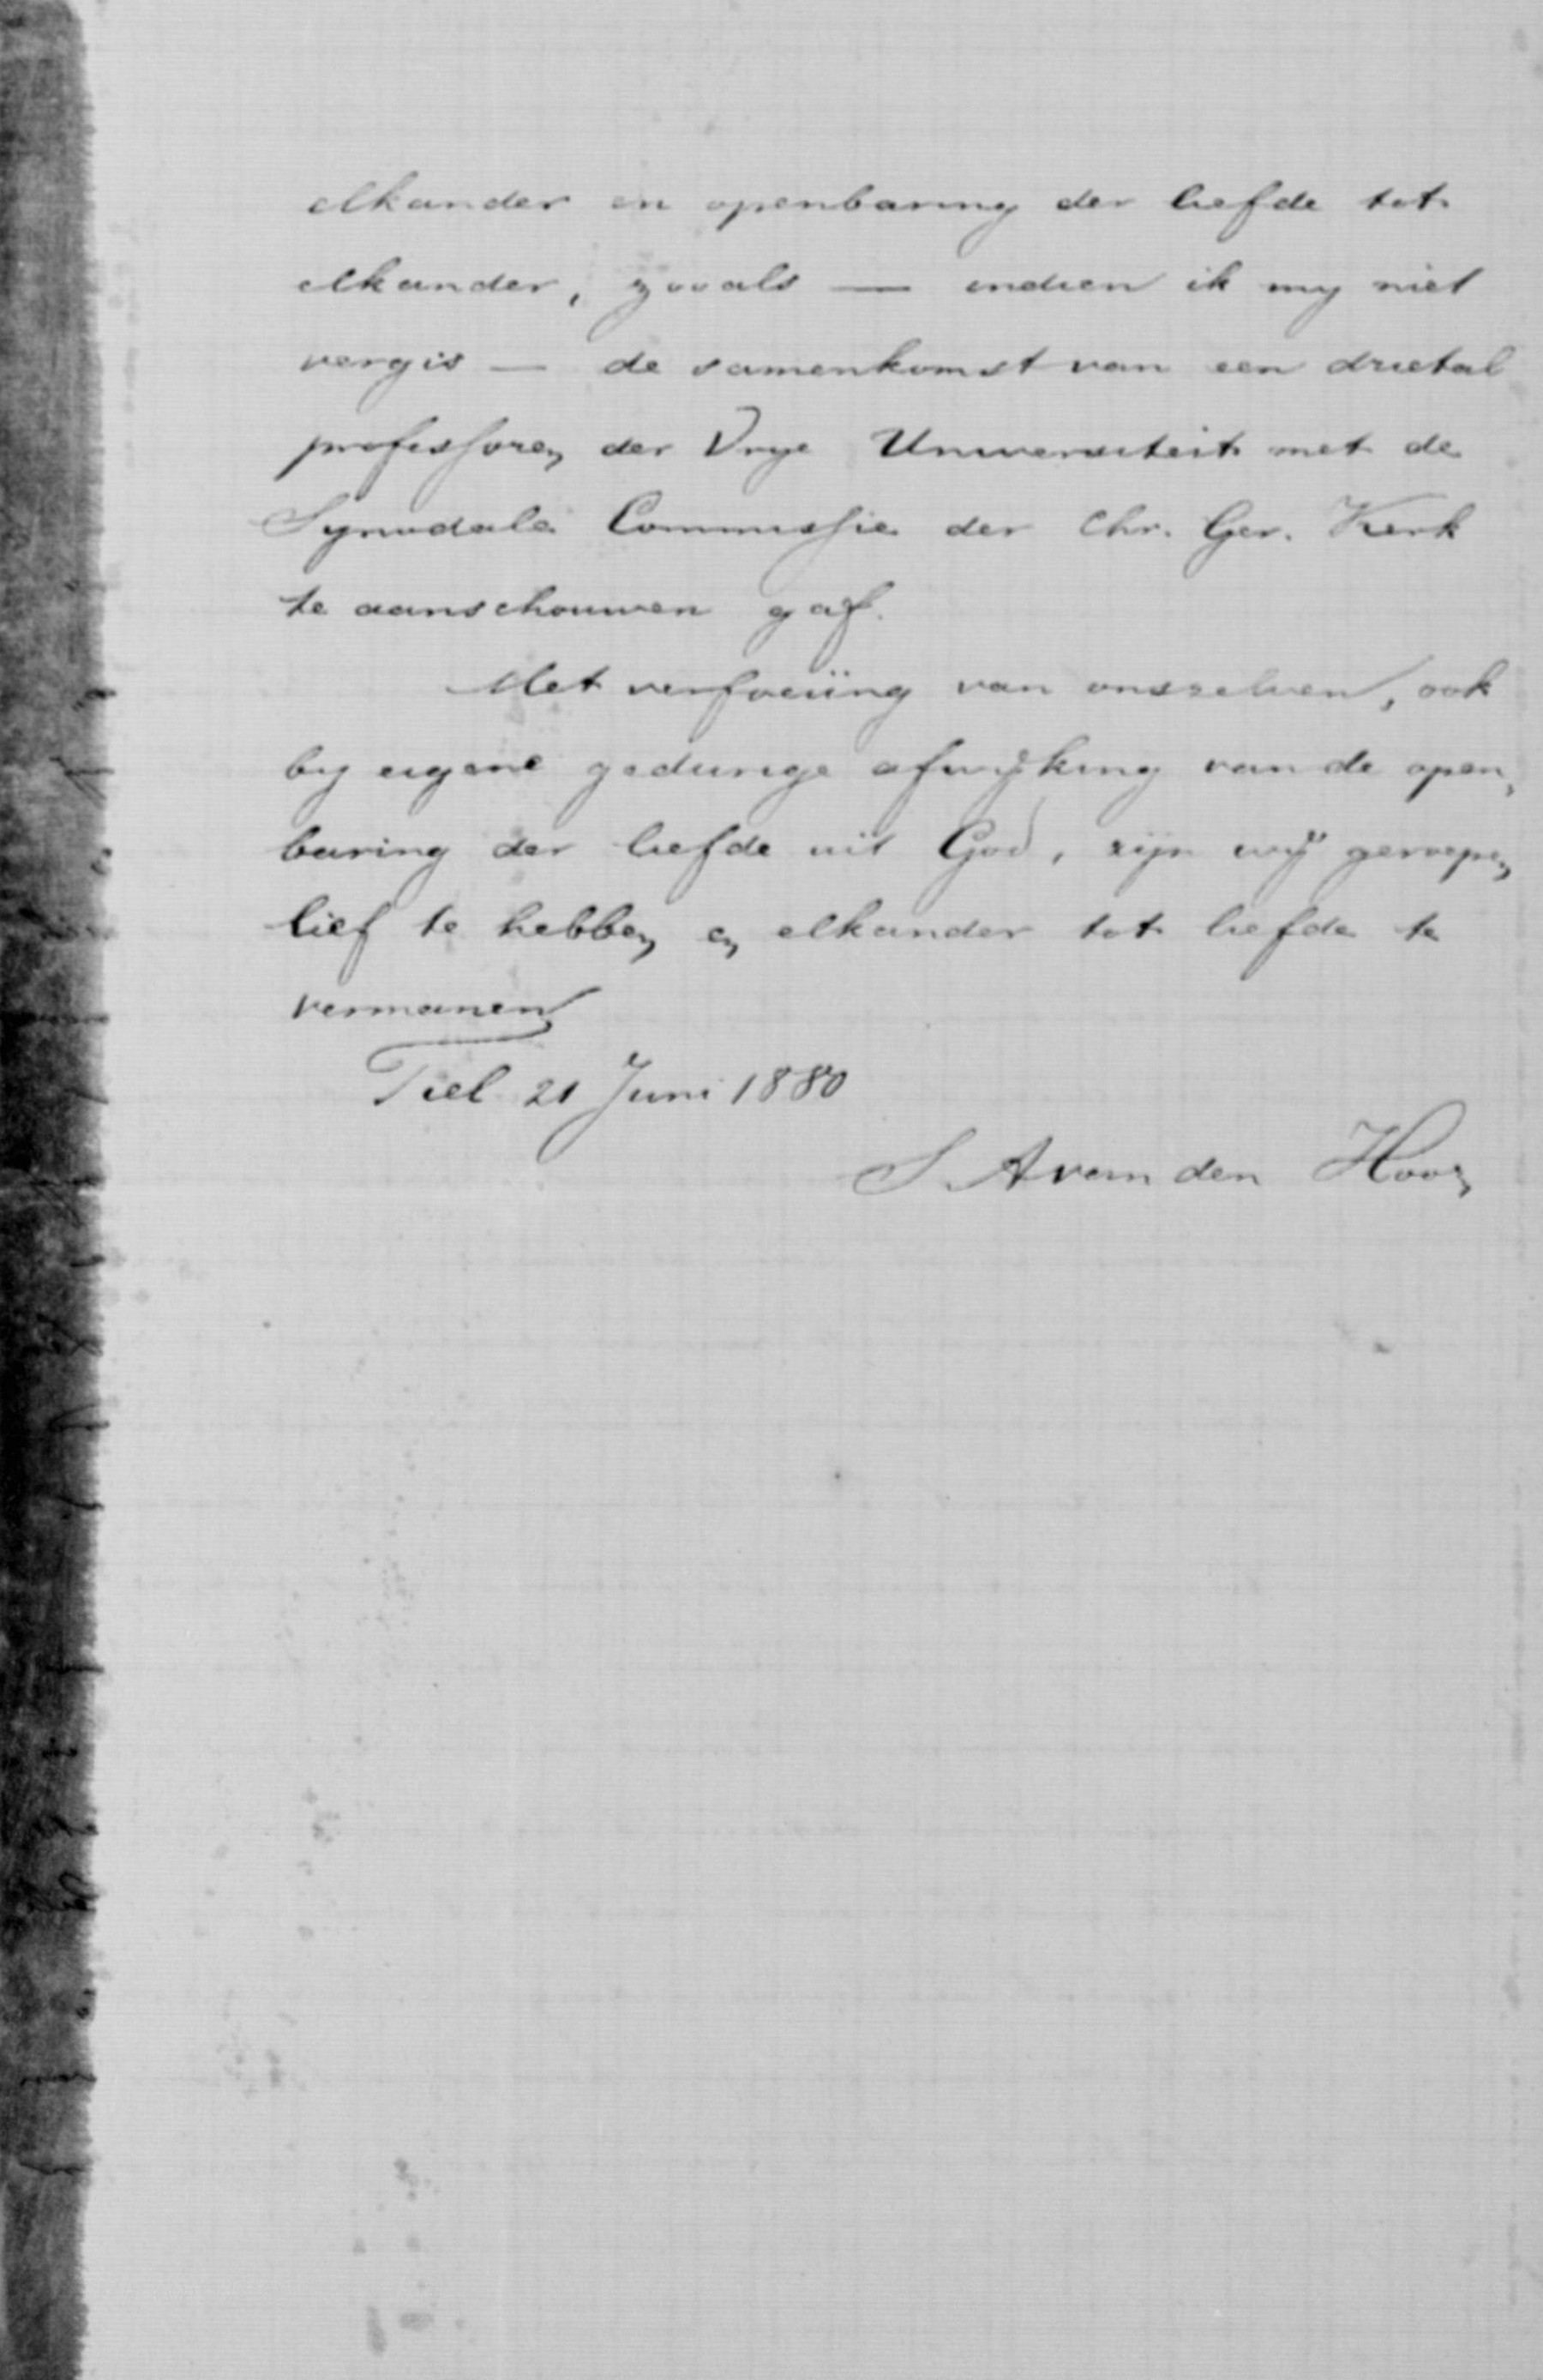 elkander en openbaring der liefde tot
elkander, zooals — indien ik my niet
vergis — de samenkomst van een drietal
professoren der Vrye Universiteit met de
Synodale Commissie der Chr. Ger. Kerk
te aanschouwen gaf.
Met verfoeiïng van onszelven, ook
by eigene gedurige afwijking van de open„
baring der liefde uit God, zijn wij geroepen
lief te hebben en elkander tot liefde te
vermanen
Tiel 21 Juni 1880
S. A van den Hoorn